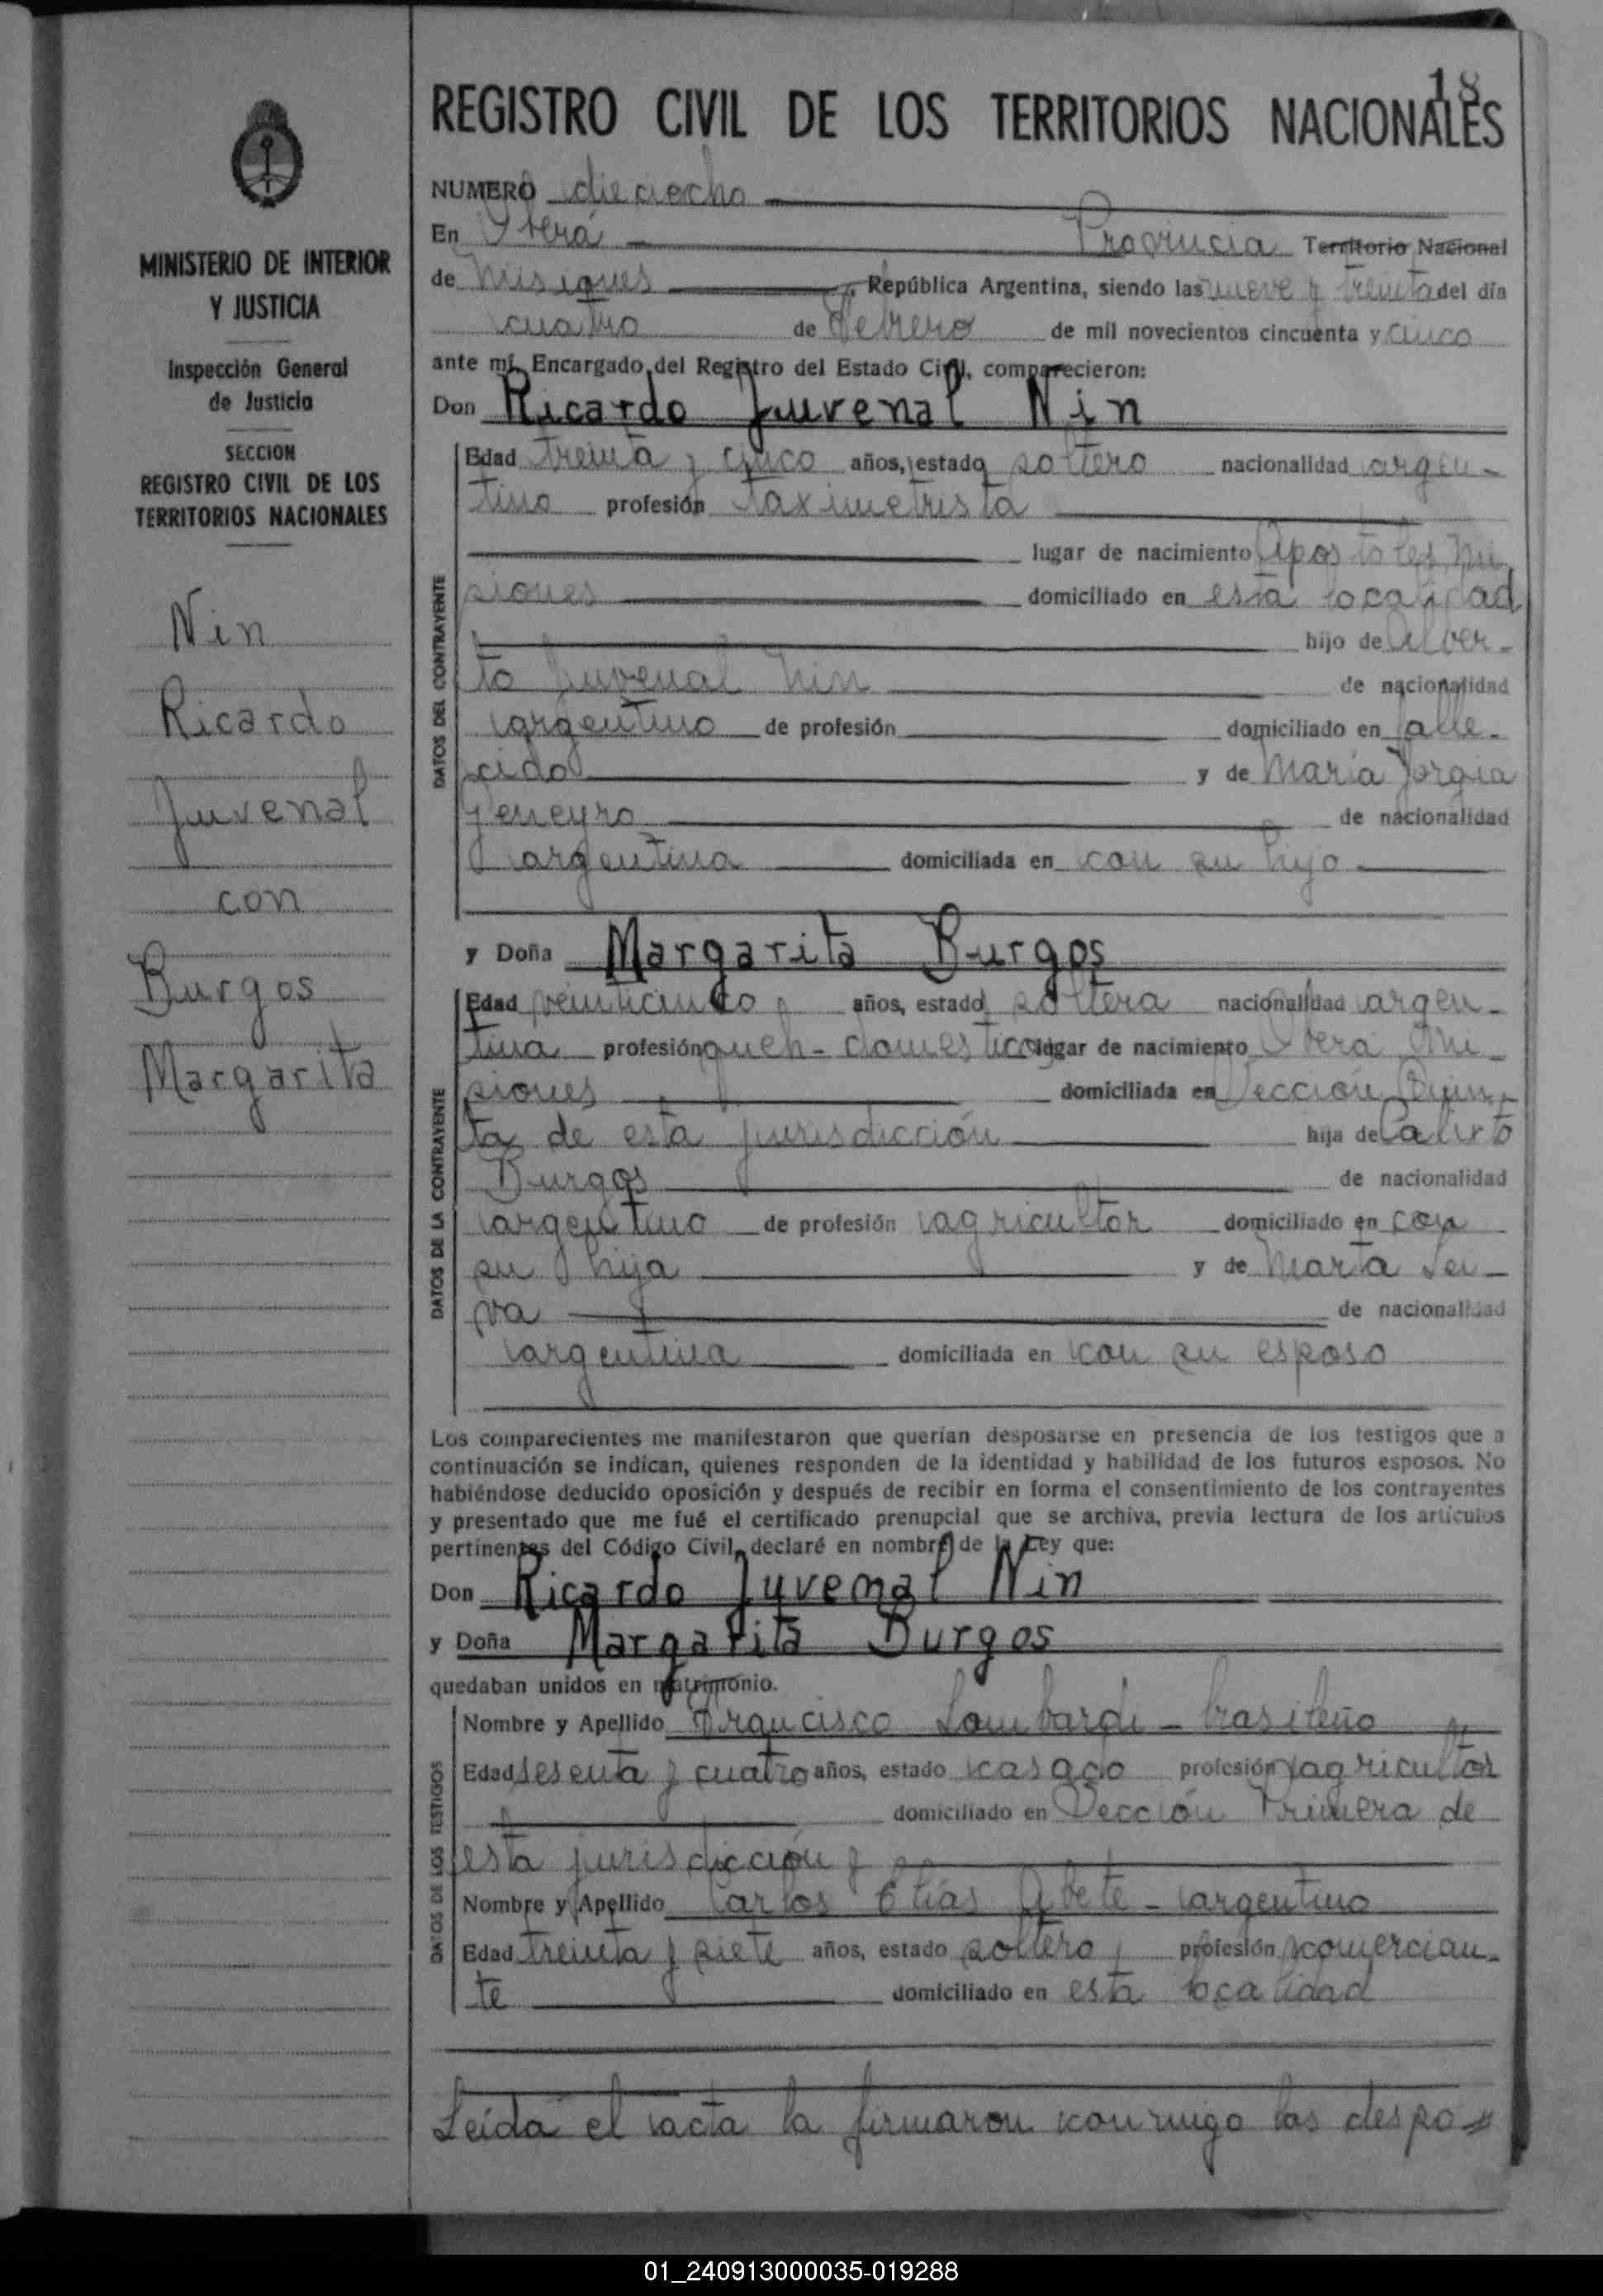 18
REGISTRO CIVIL DE LOS TERRITORIOS NACIONALES
MINISTERIO DE INTERIOR
Y JUSTICIA
Inspección General
de Justicia
SECCION
REGISTRO CIVIL DE LOS
TERRITORIOS NACIONALES
Nin
Ricardo
Juvenal
con
Burgos
Margarita
NUMERO dieciocho
En Oberá Provincia Territorio Nacional
de Misiones, República Argentina, siendo las nueve y treinta del día
cuatro de Febrero de mil novecientos cincuenta y cinco
ante mí, Encargado del Registro del Estado Civil, comparecieron:
Don Ricardo Juvenal Nin
DATOS DEL CONTRAYENTE
Edad treinta y cinco años, estado soltero nacionalidad argen-
tino profesión taximetrista
lugar de nacimiento Apostoles, Mi
siones domiciliado en esta localidad
hijo de Alber-
to Juvenal Nin de nacionalidad
argentino de profesión domiciliado en falle-
cido y de Maria Jorgia
de nacionalidad
argentina domiciliada en con su hijo
y Doña Margarita Burgos
DATOS DE LA CONTRAYENTE
Edad veinticinco años, estado soltera nacionalidad argen-
tina profesión queh- domesticos lugar de nacimiento Oberá Mi-
siones domiciliada en Sección Quin-
ta de esta jurisdicción hija de Calixto
Burgos de nacionalidad
argentino de profesión agricultor domiciliado en con
su hija y de Marta Lei-
va de nacionalidad
argentina domiciliada en con su esposo
Los comparecientes me manifestaron que querían desposarse en presencia de los testigos que a
continuación se indican, quienes responden de la identidad y habilidad de los futuros esposos. No
habiéndose deducido oposición y después de recibir en forma el consentimiento de los contrayentes
y presentado que me fué el certificado prenupcial que se archiva, previa lectura de los artículos
pertinentes del Código Civil, declaré en nombre de la Ley que:
Don Ricardo Juvenal Nin
y Doña Margarita Burgos
quedaban unidos en matrimonio.
DATOS DE LOS TESTIGOS
Nombre y Apellido Francisco Lombardi - brasileño
Edad sesenta y cuatro años, estado casado profesión agricultor
domiciliado en Sección Primera de
esta jurisdicción y
Nombre y Apellido Carlos Elías Abete - argentino
Edad treinta y siete años, estado soltero, profesión comercian-
te domiciliado en esta localidad
Leída el acta la firmaron conmigo los despo-
01_240913000035-019288